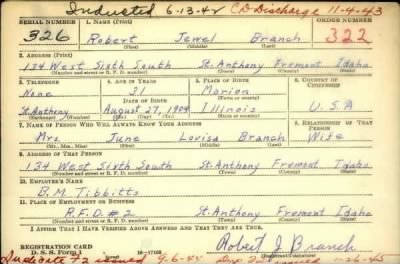 Inducted 6-13-42 CD Discharge 11-4-43
SERIAL NUMBER 1. NAME (Print) ORDER NUMBER
326 Robert Jewel Branch 322
(First) (Middle) (Last)
2. ADDRESS (Print)
134 West Sixth South St. Anthony Fremont Idaho
(Number and street or R. F. D. number) (Town) (County) (State)
3. TELEPHONE 4. AGE IN YEARS 5. PLACE OF BIRTH 6. COUNTRY OF CITIZENSHIP
None 31 Marion
DATE OF BIRTH (Town or county)
St. Anthony August 27, 1909 Illinois U.S.A
(Exchange) (Number) (Mo.) (Day) (Yr.) (State or country)
7. NAME OF PERSON WHO WILL ALWAYS KNOW YOUR ADDRESS 8. RELATIONSHIP OF THAT PERSON
Mrs. June Lovisa Branch Wife
(Mr., Mrs., Miss) (First) (Middle) (Last)
9. ADDRESS OF THAT PERSON
134 West Sixth South St. Anthony Fremont Idaho
(Number and street or R. F. D. number) (Town) (County) (State)
10. EMPLOYER'S NAME
B. M. Tibbitts
11. PLACE OF EMPLOYMENT OR BUSINESS
R.F.D. #2 St. Anthony Fremont Idaho
(Number and street or R. F. D. number) (Town) (County) (State)
I AFFIRM THAT I HAVE VERIFIED ABOVE ANSWERS AND THAT THEY ARE TRUE.
REGISTRATION CARD
D. S. S. Form 1 Robert J Branch
(Registrant's signature)
issued 9-6-45